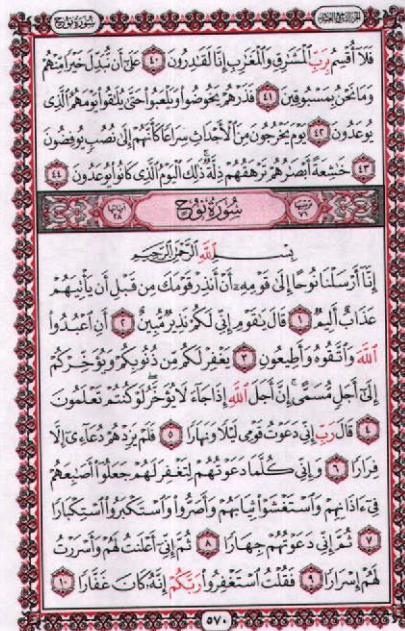 سُورَةُ نُوحٍ
فَلَا أُقْسِمُ بِرَبِّ الْمَشَارِقِ وَالْمَغَارِبِ إِنَّا لَقَادِرُونَ ٤٠ عَلَىٰ أَن نُّبَدِّلَ خَيْرًا مِّنْهُمْ
وَمَا نَحْنُ بِمَسْبُوقِينَ ٤١ فَذَرْهُمْ يَخُوضُوا وَيَلْعَبُوا حَتَّىٰ يُلَاقُوا يَوْمَهُمُ الَّذِي
يُوعَدُونَ ٤٢ يَوْمَ يَخْرُجُونَ مِنَ الْأَجْدَاثِ سِرَاعًا كَأَنَّهُمْ إِلَىٰ نُصُبٍ يُوفِضُونَ
٤٣ خَاشِعَةً أَبْصَارُهُمْ تَرْهَقُهُمْ ذِلَّةٌ ذَٰلِكَ الْيَوْمُ الَّذِي كَانُوا يُوعَدُونَ ٤٤
سُورَةُ نُوحٍ
بِسْمِ اللَّهِ الرَّحْمَٰنِ الرَّحِيمِ
إِنَّا أَرْسَلْنَا نُوحًا إِلَىٰ قَوْمِهِ أَنْ أَنذِرْ قَوْمَكَ مِن قَبْلِ أَن يَأْتِيَهُمْ
عَذَابٌ أَلِيمٌ ١ قَالَ يَا قَوْمِ إِنِّي لَكُمْ نَذِيرٌ مُّبِينٌ ٢ أَنِ اعْبُدُوا
اللَّهَ وَاتَّقُوهُ وَأَطِيعُونِ ٣ يَغْفِرْ لَكُم مِّن ذُنُوبِكُمْ وَيُؤَخِّرْكُمْ
إِلَىٰ أَجَلٍ مُّسَمًّى إِنَّ أَجَلَ اللَّهِ إِذَا جَاءَ لَا يُؤَخَّرُ لَوْ كُنتُمْ تَعْلَمُونَ
٤ قَالَ رَبِّ إِنِّي دَعَوْتُ قَوْمِي لَيْلًا وَنَهَارًا ٥ فَلَمْ يَزِدْهُمْ دُعَائِي إِلَّا
فِرَارًا ٦ وَإِنِّي كُلَّمَا دَعَوْتُهُمْ لِتَغْفِرَ لَهُمْ جَعَلُوا أَصَابِعَهُمْ
فِي آذَانِهِمْ وَاسْتَغْشَوْا ثِيَابَهُمْ وَأَصَرُّوا وَاسْتَكْبَرُوا اسْتِكْبَارًا
٧ ثُمَّ إِنِّي دَعَوْتُهُمْ جِهَارًا ٨ ثُمَّ إِنِّي أَعْلَنتُ لَهُمْ وَأَسْرَرْتُ
لَهُمْ إِسْرَارًا ٩ فَقُلْتُ اسْتَغْفِرُوا رَبَّكُمْ إِنَّهُ كَانَ غَفَّارًا ١٠
٥٧٠